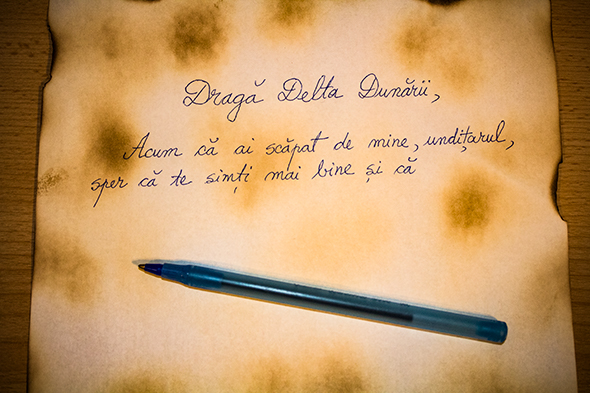 Dragă Delta Dunării,
Acum că ai scăpat de mine, undițarul,
sper că te simți mai bine și că